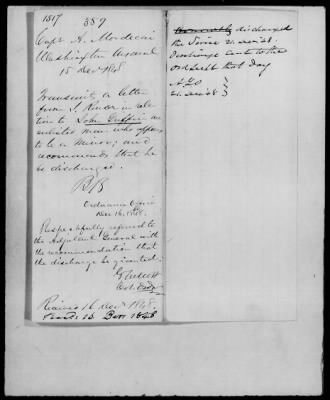 1817 389
Capt. A. Mordecai
Washington Arsenal
15 Decr 1848
Transmits a letter
from J. in rela-
tion to John Griffin an
enlisted man who appears
to be a Minor; and
recommends that he
be discharged.
Ordnance Office
Dec 16, 1848.
Respectfully referred to
the Adjutant General with
the recommendation that
the discharge be granted.
G. Talcott
Received 16 Decr 1848.
Decr 1848
Honorably discharged
the Service 21
Discharge sent to the
that Day
A.G.O. }
21 }